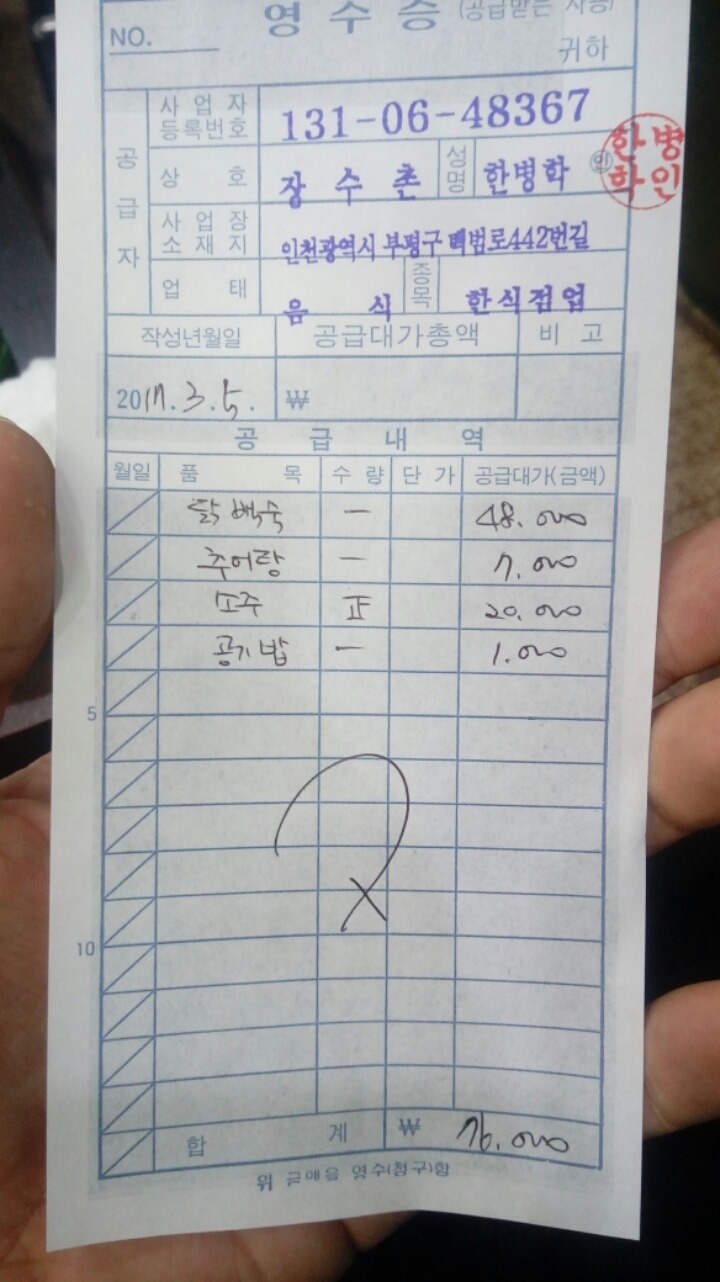 영 수 증 (공급받는 자용)
NO.
귀하
공급자
사업자등록번호 131-06-48367
상 호 장 수 촌 성명 한병학 ㊞ 한병학인
사업장소재지 인천광역시 부평구 백범로442번길
업 태 음 식 종목 한식점업
작성년월일 공급대가총액 비 고
2017.3.5. ₩
공 급 내 역
월일 품 목 수 량 단 가 공급대가(금액)
닭백숙 一 48.000
추어탕 一 7.000
소주 正 20.000
공기밥 一 1.000
5
10
합 계 ₩ 76.000
위 금액을 영수(청구)함